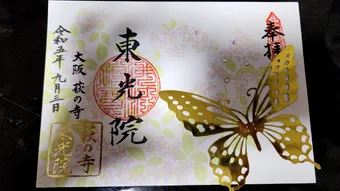 奉拝
東光院
大阪 萩の寺
令和五年九月三日
萩の寺
東光院